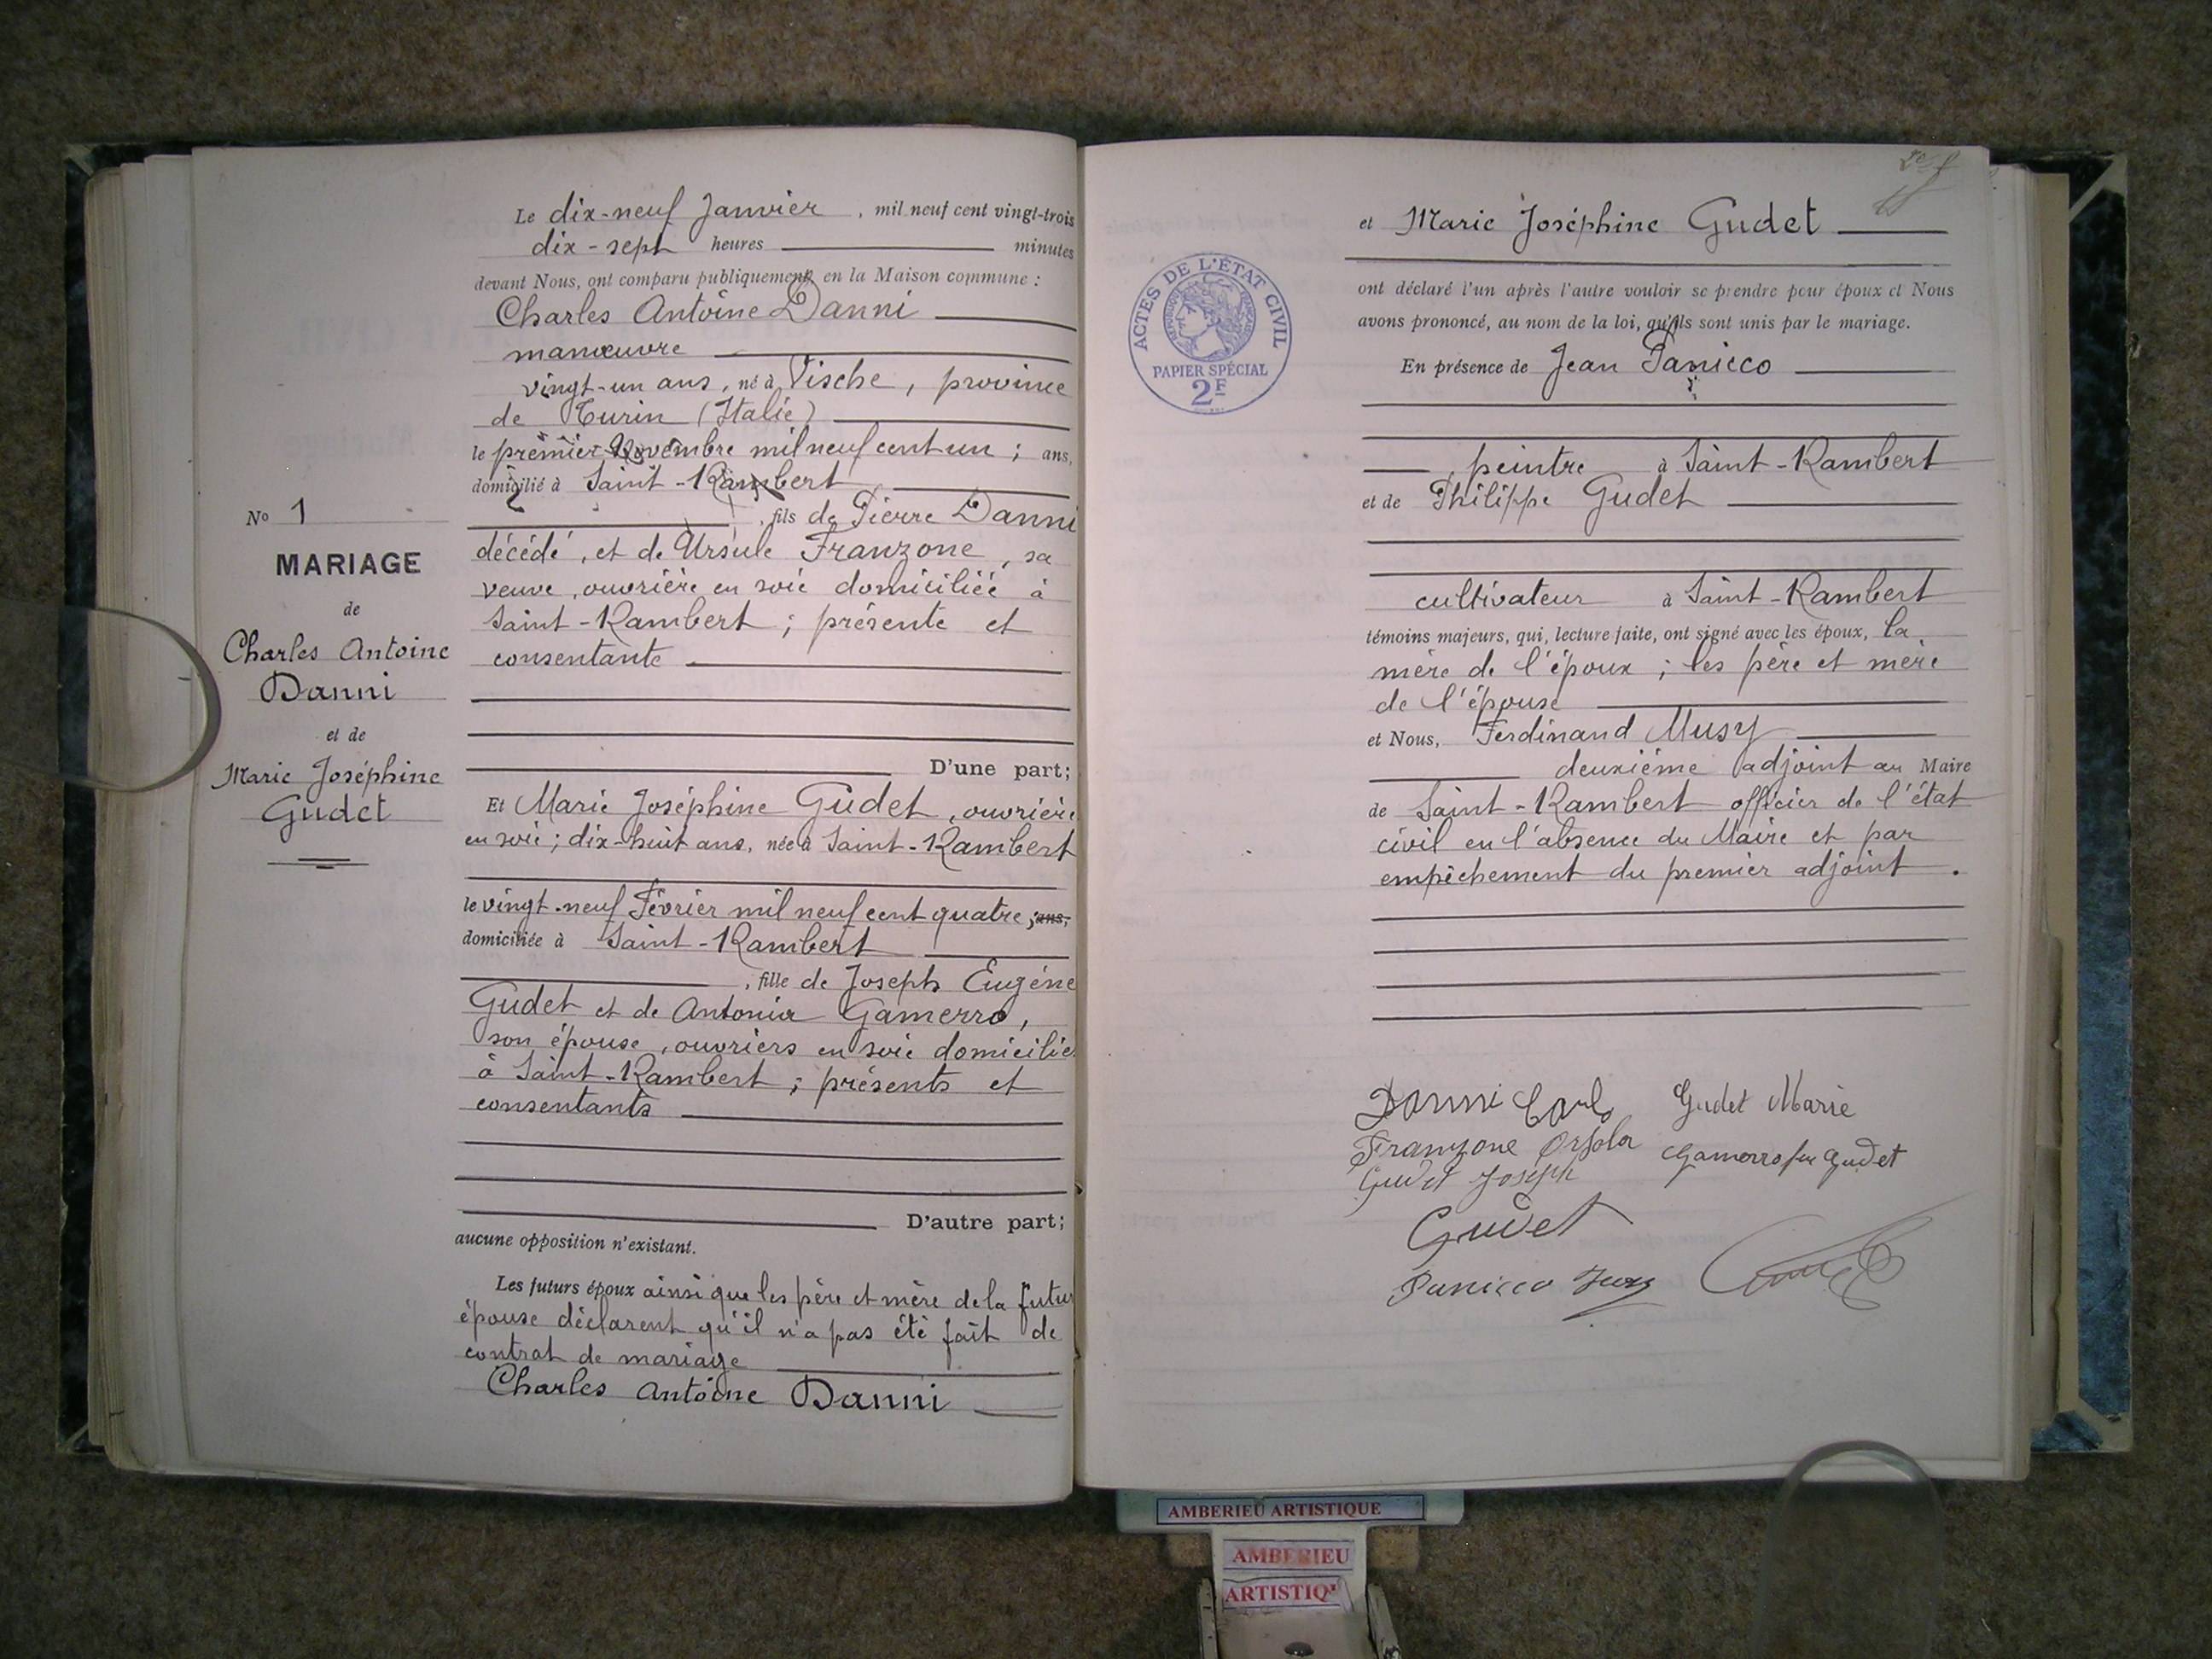 Le dix-neuf Janvier, mil neuf cent vingt-trois
dix-sept heures minutes
devant Nous, ont comparu publiquement en la Maison commune :
Charles Antoine Danni
manœuvre
vingt-un ans, né à Vische, province
de Turin (Italie)
le premier Novembre mil neuf cent un ; ans,
domicilié à Saint-Rambert
, fils de Pierre Danni
décédé, et de Ursule Franzone, sa
veuve, ouvrière en soie domiciliée à
Saint-Rambert ; présente et
consentante
D'une part;
No 1
MARIAGE
de
Charles Antoine
Danni
et de
Marie Joséphine
Gudet
Et Marie Joséphine Gudet, ouvrière
en soie ; dix-huit ans, née à Saint-Rambert
le vingt-neuf Février mil neuf cent quatre ; ans,
domiciliée à Saint-Rambert
, fille de Joseph Eugène
Gudet et de Antonia Gamerro,
son épouse, ouvriers en soie domiciliés
à Saint-Rambert ; présents et
consentants
D'autre part;
aucune opposition n'existant.
Les futurs époux ainsi que les père et mère de la futur
épouse déclarent qu'il n'a pas été fait de
contrat de mariage
Charles Antoine Danni
et Marie Joséphine Gudet
ont déclaré l'un après l'autre vouloir se prendre pour époux et Nous
avons prononcé, au nom de la loi, qu'ils sont unis par le mariage.
En présence de Jean Panicco
, peintre à Saint-Rambert
et de Philippe Gudet
cultivateur à Saint-Rambert
témoins majeurs, qui, lecture faite, ont signé avec les époux, la
mère de l'époux ; les père et mère
de l'épouse
et Nous, Ferdinand Musy
deuxième adjoint au Maire
de Saint-Rambert officier de l'état
civil en l'absence du Maire et par
empêchement du premier adjoint.
Danni Carlo Gudet Marie
Franzone Orsola Gamerro Gudet
Gudet Joseph
Gudet
Panicco
ACTES DE L'ÉTAT CIVIL
RÉPUBLIQUE FRANÇAISE
PAPIER SPÉCIAL
2F
AMBERIEU ARTISTIQUE
AMBERIEU
ARTISTIQ